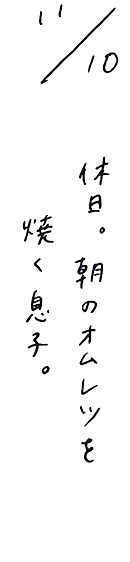 11/10
休日。朝のオムレツを
焼く息子。